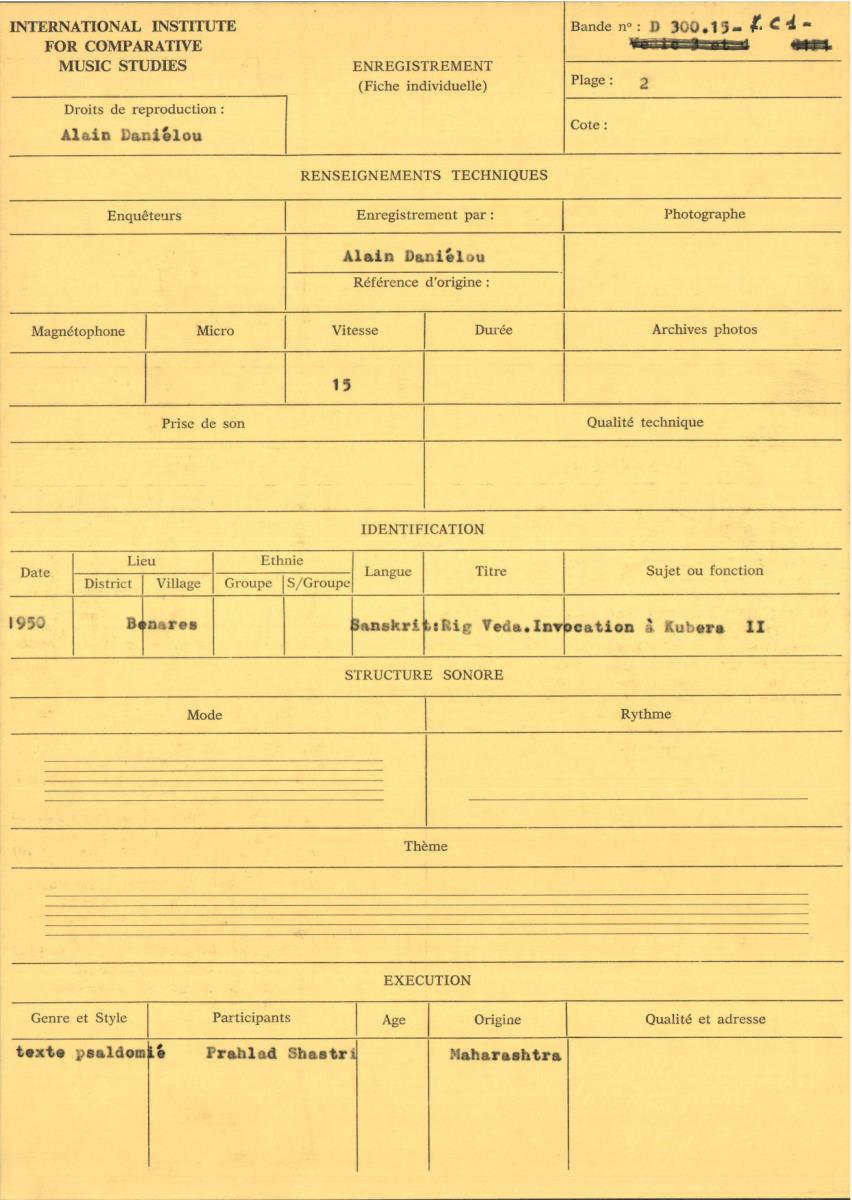 INTERNATIONAL INSTITUTE
FOR COMPARATIVE
MUSIC STUDIES
Droits de reproduction :
Alain Daniélou
ENREGISTREMENT
(Fiche individuelle)
Bande nº : D 300.15-
Vedic 3 et 4
Plage : 2
Cote :
RENSEIGNEMENTS TECHNIQUES
Enquêteurs
Enregistrement par :
Photographe
Alain Daniélou
Référence d'origine :
Magnétophone
Micro
Vitesse
Durée
Archives photos
15
Prise de son
Qualité technique
IDENTIFICATION
Date
Lieu
Ethnie
Langue
Titre
Sujet ou fonction
District
Village
Groupe
S/Groupe
1950
Benares
Sanskrit:Rig Veda.Invocation à Kubera II
STRUCTURE SONORE
Mode
Rythme
Thème
EXECUTION
Genre et Style
Participants
Age
Origine
Qualité et adresse
texte psaldomié
Prahlad Shastri
Maharashtra